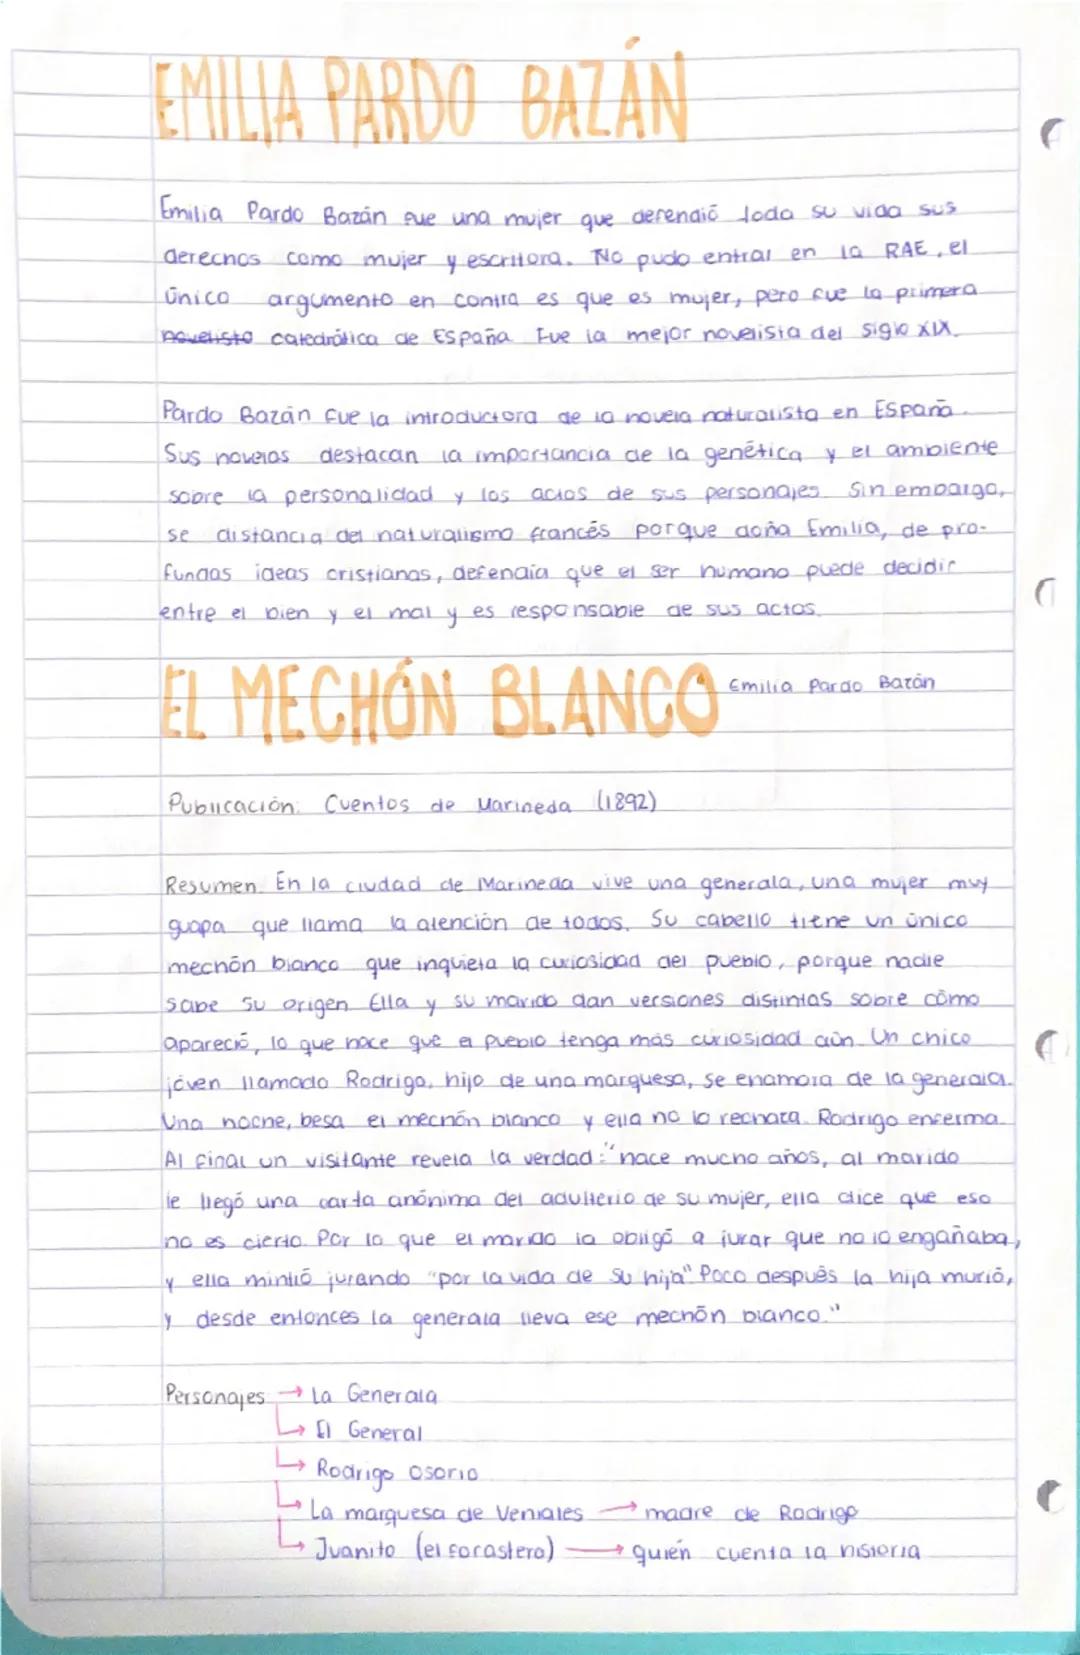 EMILIA PARDO BAZÁN
Emilia Pardo Bazán fue una mujer que defendió toda su vida sus
derechos como mujer y escritora. No pudo entrar en la RAE, el
único argumento en contra es que es mujer, pero fue la primera
novelista catedrática de España. Fue la mejor novelista del siglo XIX.
Pardo Bazán fue la introductora de la novela naturalista en España.
Sus novelas destacan la importancia de la genética y el ambiente
sobre la personalidad y los actos de sus personajes. Sin embargo,
se distancia del naturalismo francés porque doña Emilia, de pro-
fundas ideas cristianas, defendía que el ser humano puede decidir
entre el bien y el mal y es responsable de sus actos.
EL MECHÓN BLANCO Emilia Pardo Bazán
Publicación: Cuentos de Marineda (1892)
Resumen. En la ciudad de Marineda vive una generala, una mujer muy
guapa que llama la atención de todos. Su cabello tiene un único
mechón blanco que inquieta la curiosidad del pueblo, porque nadie
sabe su origen. Ella y su marido dan versiones distintas sobre cómo
apareció, lo que hace que el pueblo tenga más curiosidad aún. Un chico
jóven llamado Rodrigo, hijo de una marquesa, se enamora de la generala.
Una noche, besa el mechón blanco y ella no lo rechaza. Rodrigo enferma.
Al final un visitante revela la verdad: "hace mucho años, al marido
le llegó una carta anónima del adulterio de su mujer, ella dice que eso
no es cierto. Por lo que el marido la obligó a jurar que no lo engañaba,
y ella mintió jurando "por la vida de su hija". Poco después la hija murió,
y desde entonces la generala lleva ese mechón blanco."
Personajes → La Generala
↳ El General
↳ Rodrigo Osorio
↳ La marquesa de Veniales → madre de Rodrigo
↳ Juanito (el forastero) → quién cuenta la historia